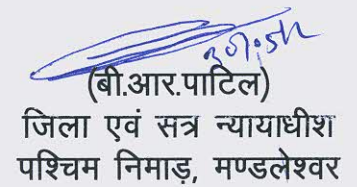 (बी.आर.पाटिल)
जिला एवं सत्र न्यायाधीश
पश्चिम निमाड़, मण्डलेश्वर